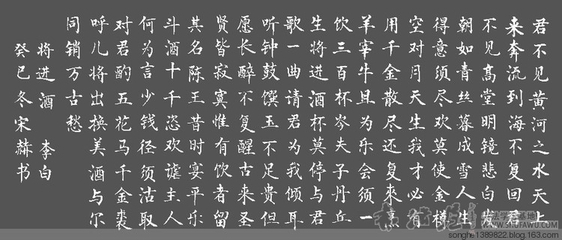 君不见黄河之水天上
来奔流到海不复回君
不见高堂明镜悲白发
朝如青丝暮成雪人生
得意须尽欢莫使金樽
空对月天生我才必有
用千金散尽还复來烹
羊宰牛且为乐会须一
饮三百杯岑夫子丹丘
生将进酒杯莫停与君
歌一曲请君为我倾耳
听钟鼓馔玉不足贵但
愿长醉不复醒古来圣
贤皆寂寞惟有饮者留
其名陈王昔时宴平乐
斗酒十千恣欢谑主人
何为言少钱径须沽取
对君酌五花马千金裘
呼儿将出换美酒与尔
同销万古愁
将进酒 李白
癸巳冬宋赫书